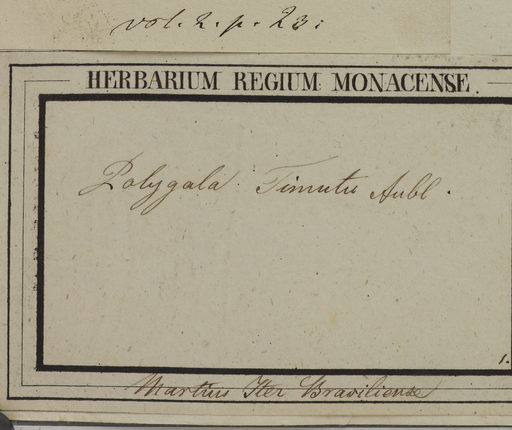 vol. 2. p. 23:
HERBARIUM REGIUM MONACENSE.
Polygala Timutu Aubl.
1.
Martius Iter Brasiliense